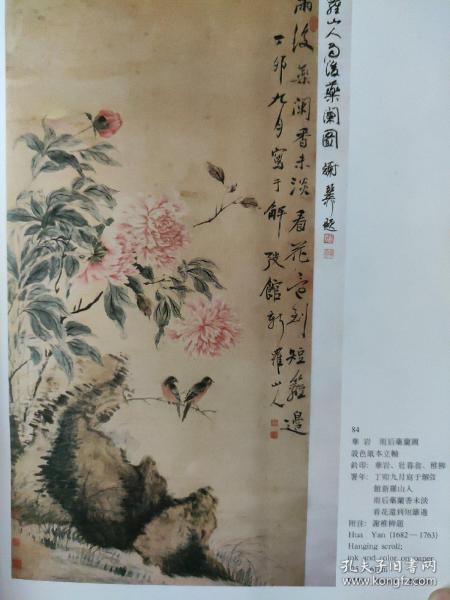 羅山人雨後藥闌圖 謝稚題
雨後藥闌香未淡 看花還到短籬邊
丁卯九月寫于解弢館 新羅山人
84
華 岩 雨后藥闌圖
設色紙本立軸
鈐印: 華岩、
署年: 丁卯九月寫于解弢
館新羅山人
雨后藥闌香未淡
看花還到短籬邊
附注: 謝稚柳題
Hua Yan (1682—1763)
Hanging scroll;
ink and color on paper
孔夫子旧书网